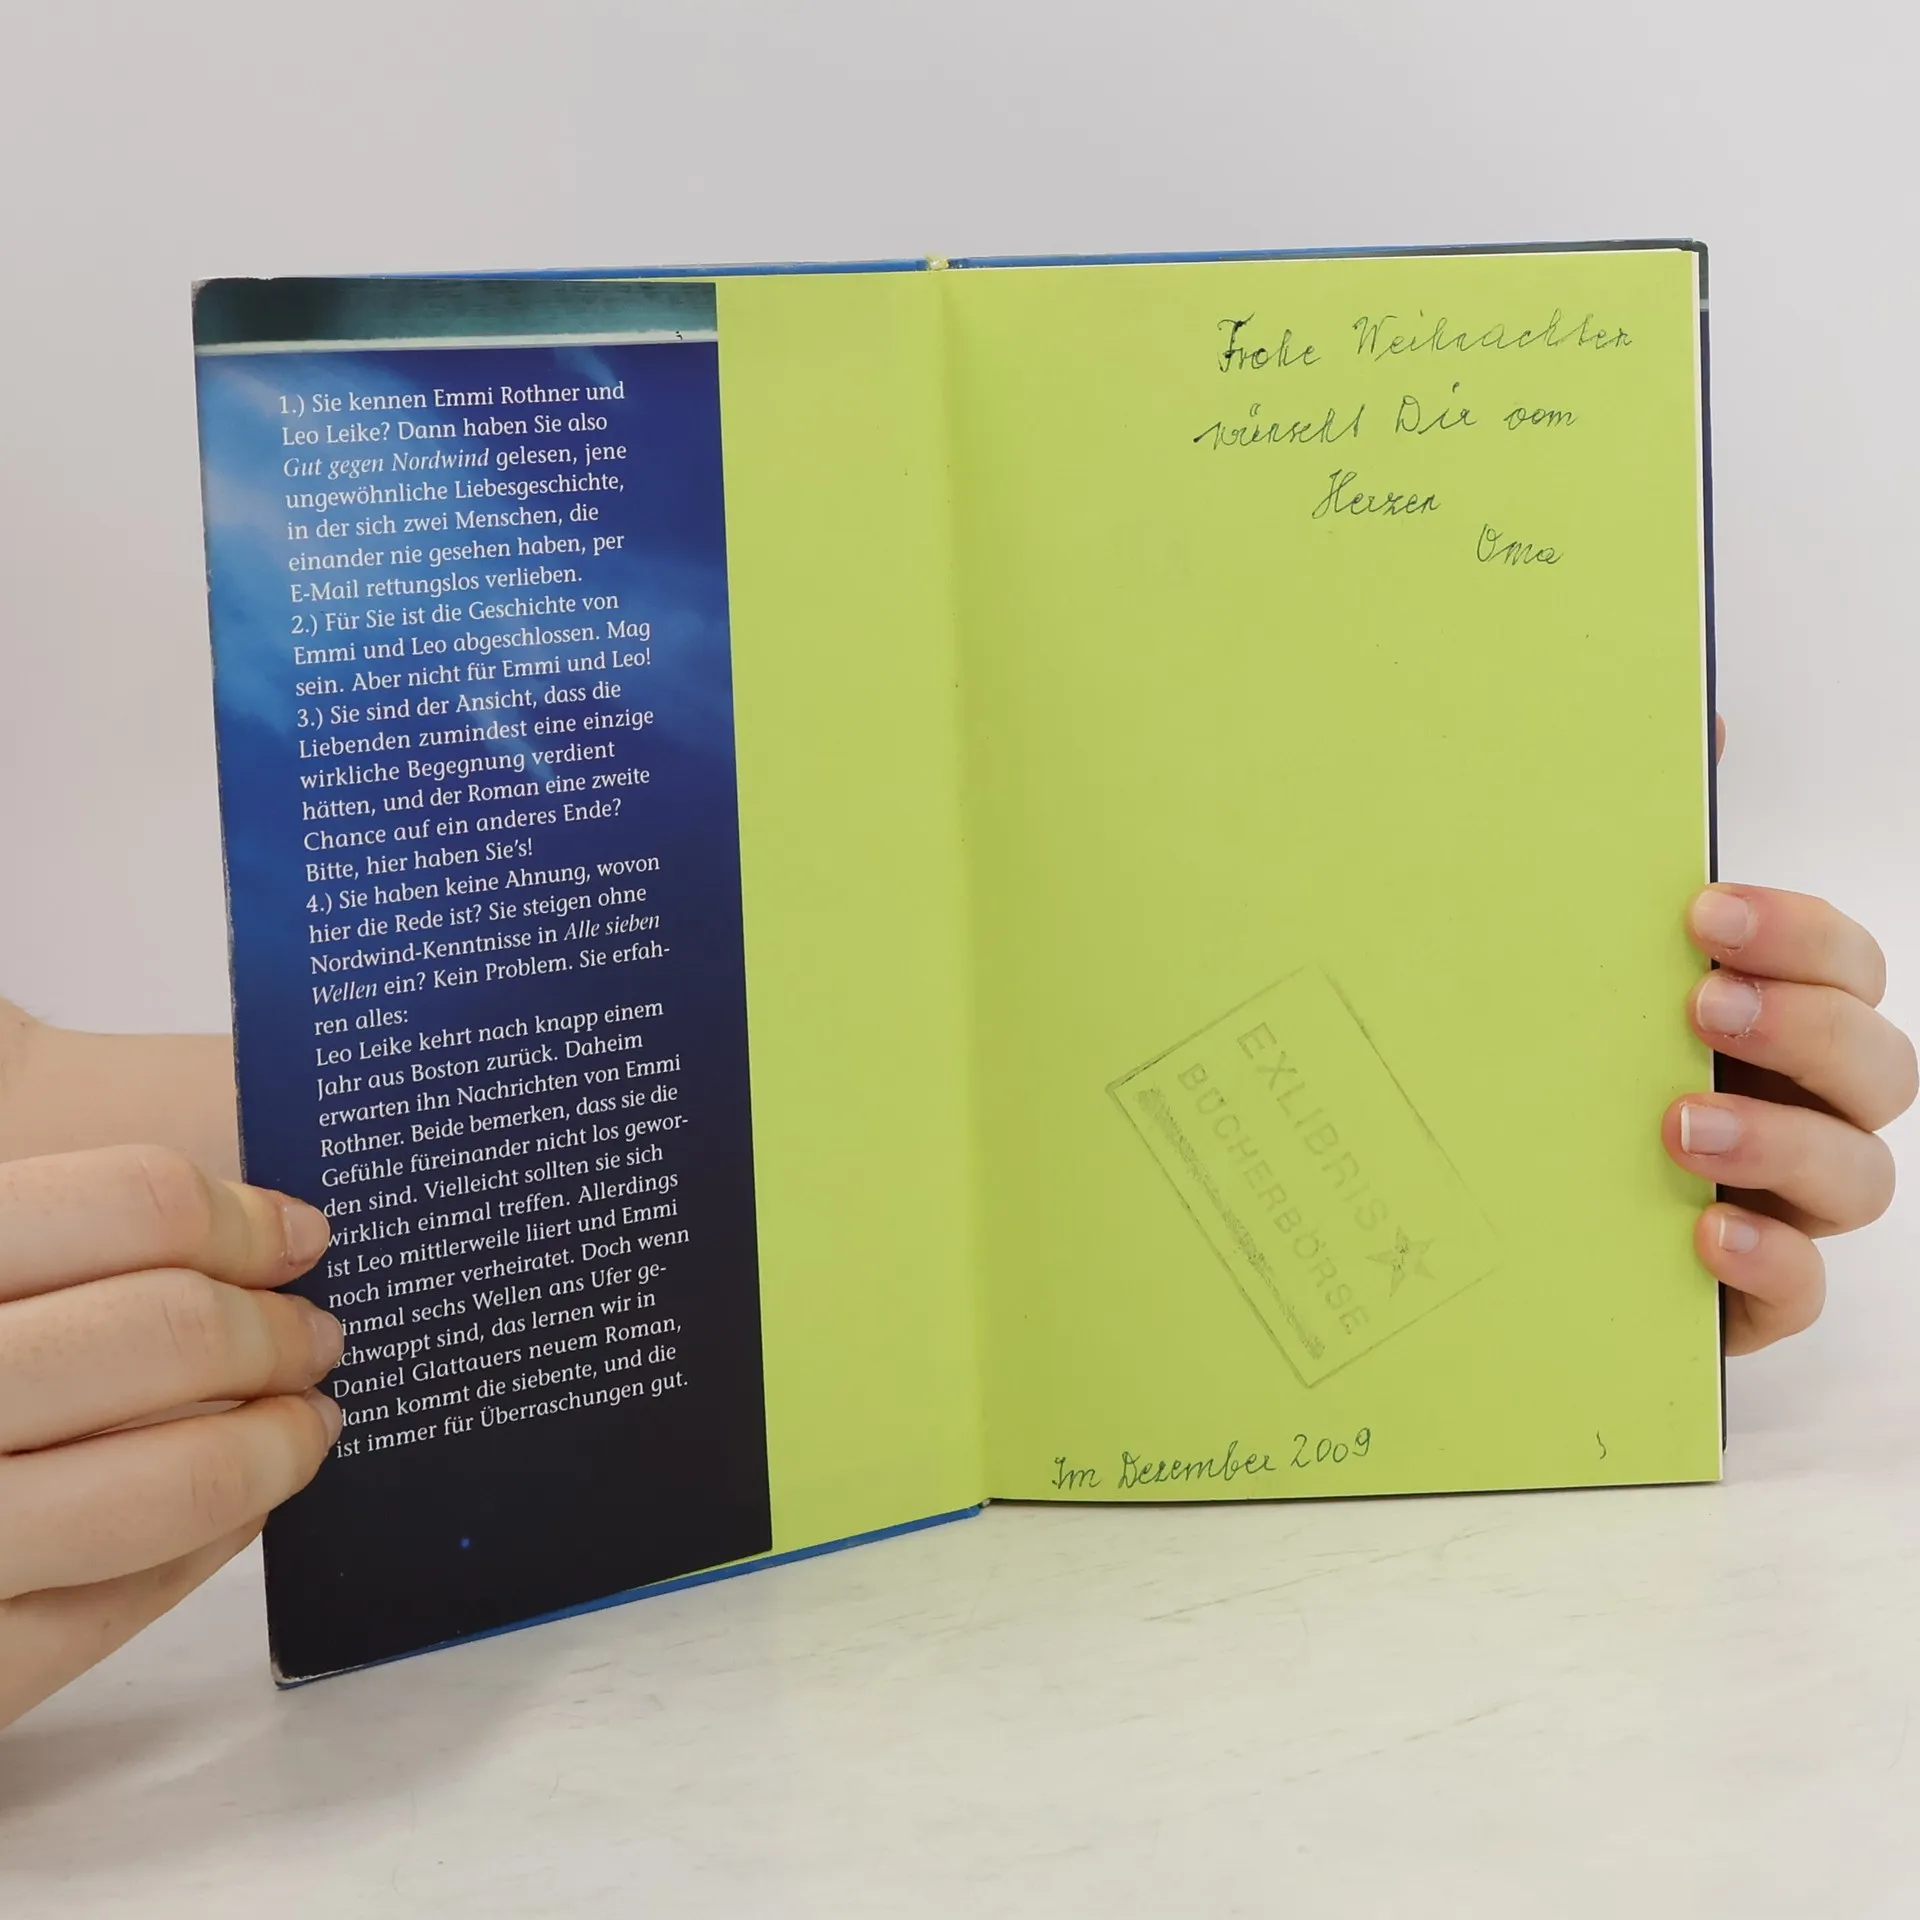 1.) Sie kennen Emmi Rothner und
Leo Leike? Dann haben Sie also
Gut gegen Nordwind gelesen, jene
ungewöhnliche Liebesgeschichte,
in der sich zwei Menschen, die
einander nie gesehen haben, per
E-Mail rettungslos verlieben.
2.) Für Sie ist die Geschichte von
Emmi und Leo abgeschlossen. Mag
sein. Aber nicht für Emmi und Leo!
3.) Sie sind der Ansicht, dass die
Liebenden zumindest eine einzige
wirkliche Begegnung verdient
hätten, und der Roman eine zweite
Chance auf ein anderes Ende?
Bitte, hier haben Sie's!
4.) Sie haben keine Ahnung, wovon
hier die Rede ist? Sie steigen ohne
Nordwind-Kenntnisse in Alle sieben
Wellen ein? Kein Problem. Sie erfah-
ren alles:
Leo Leike kehrt nach knapp einem
Jahr aus Boston zurück. Daheim
erwarten ihn Nachrichten von Emmi
Rothner. Beide bemerken, dass sie die
Gefühle füreinander nicht los gewor-
den sind. Vielleicht sollten sie sich
wirklich einmal treffen. Allerdings
ist Leo mittlerweile liiert und Emmi
noch immer verheiratet. Doch wenn
inmal sechs Wellen ans Ufer ge-
schwappt sind, das lernen wir in
Daniel Glattauers neuem Roman,
dann kommt die siebente, und die
ist immer für Überraschungen gut.
Frohe Weihnachten
wünscht Dir vom
Herzen
Oma
EXLIBRIS
BÜCHERBÖRSE
Im Dezember 2009